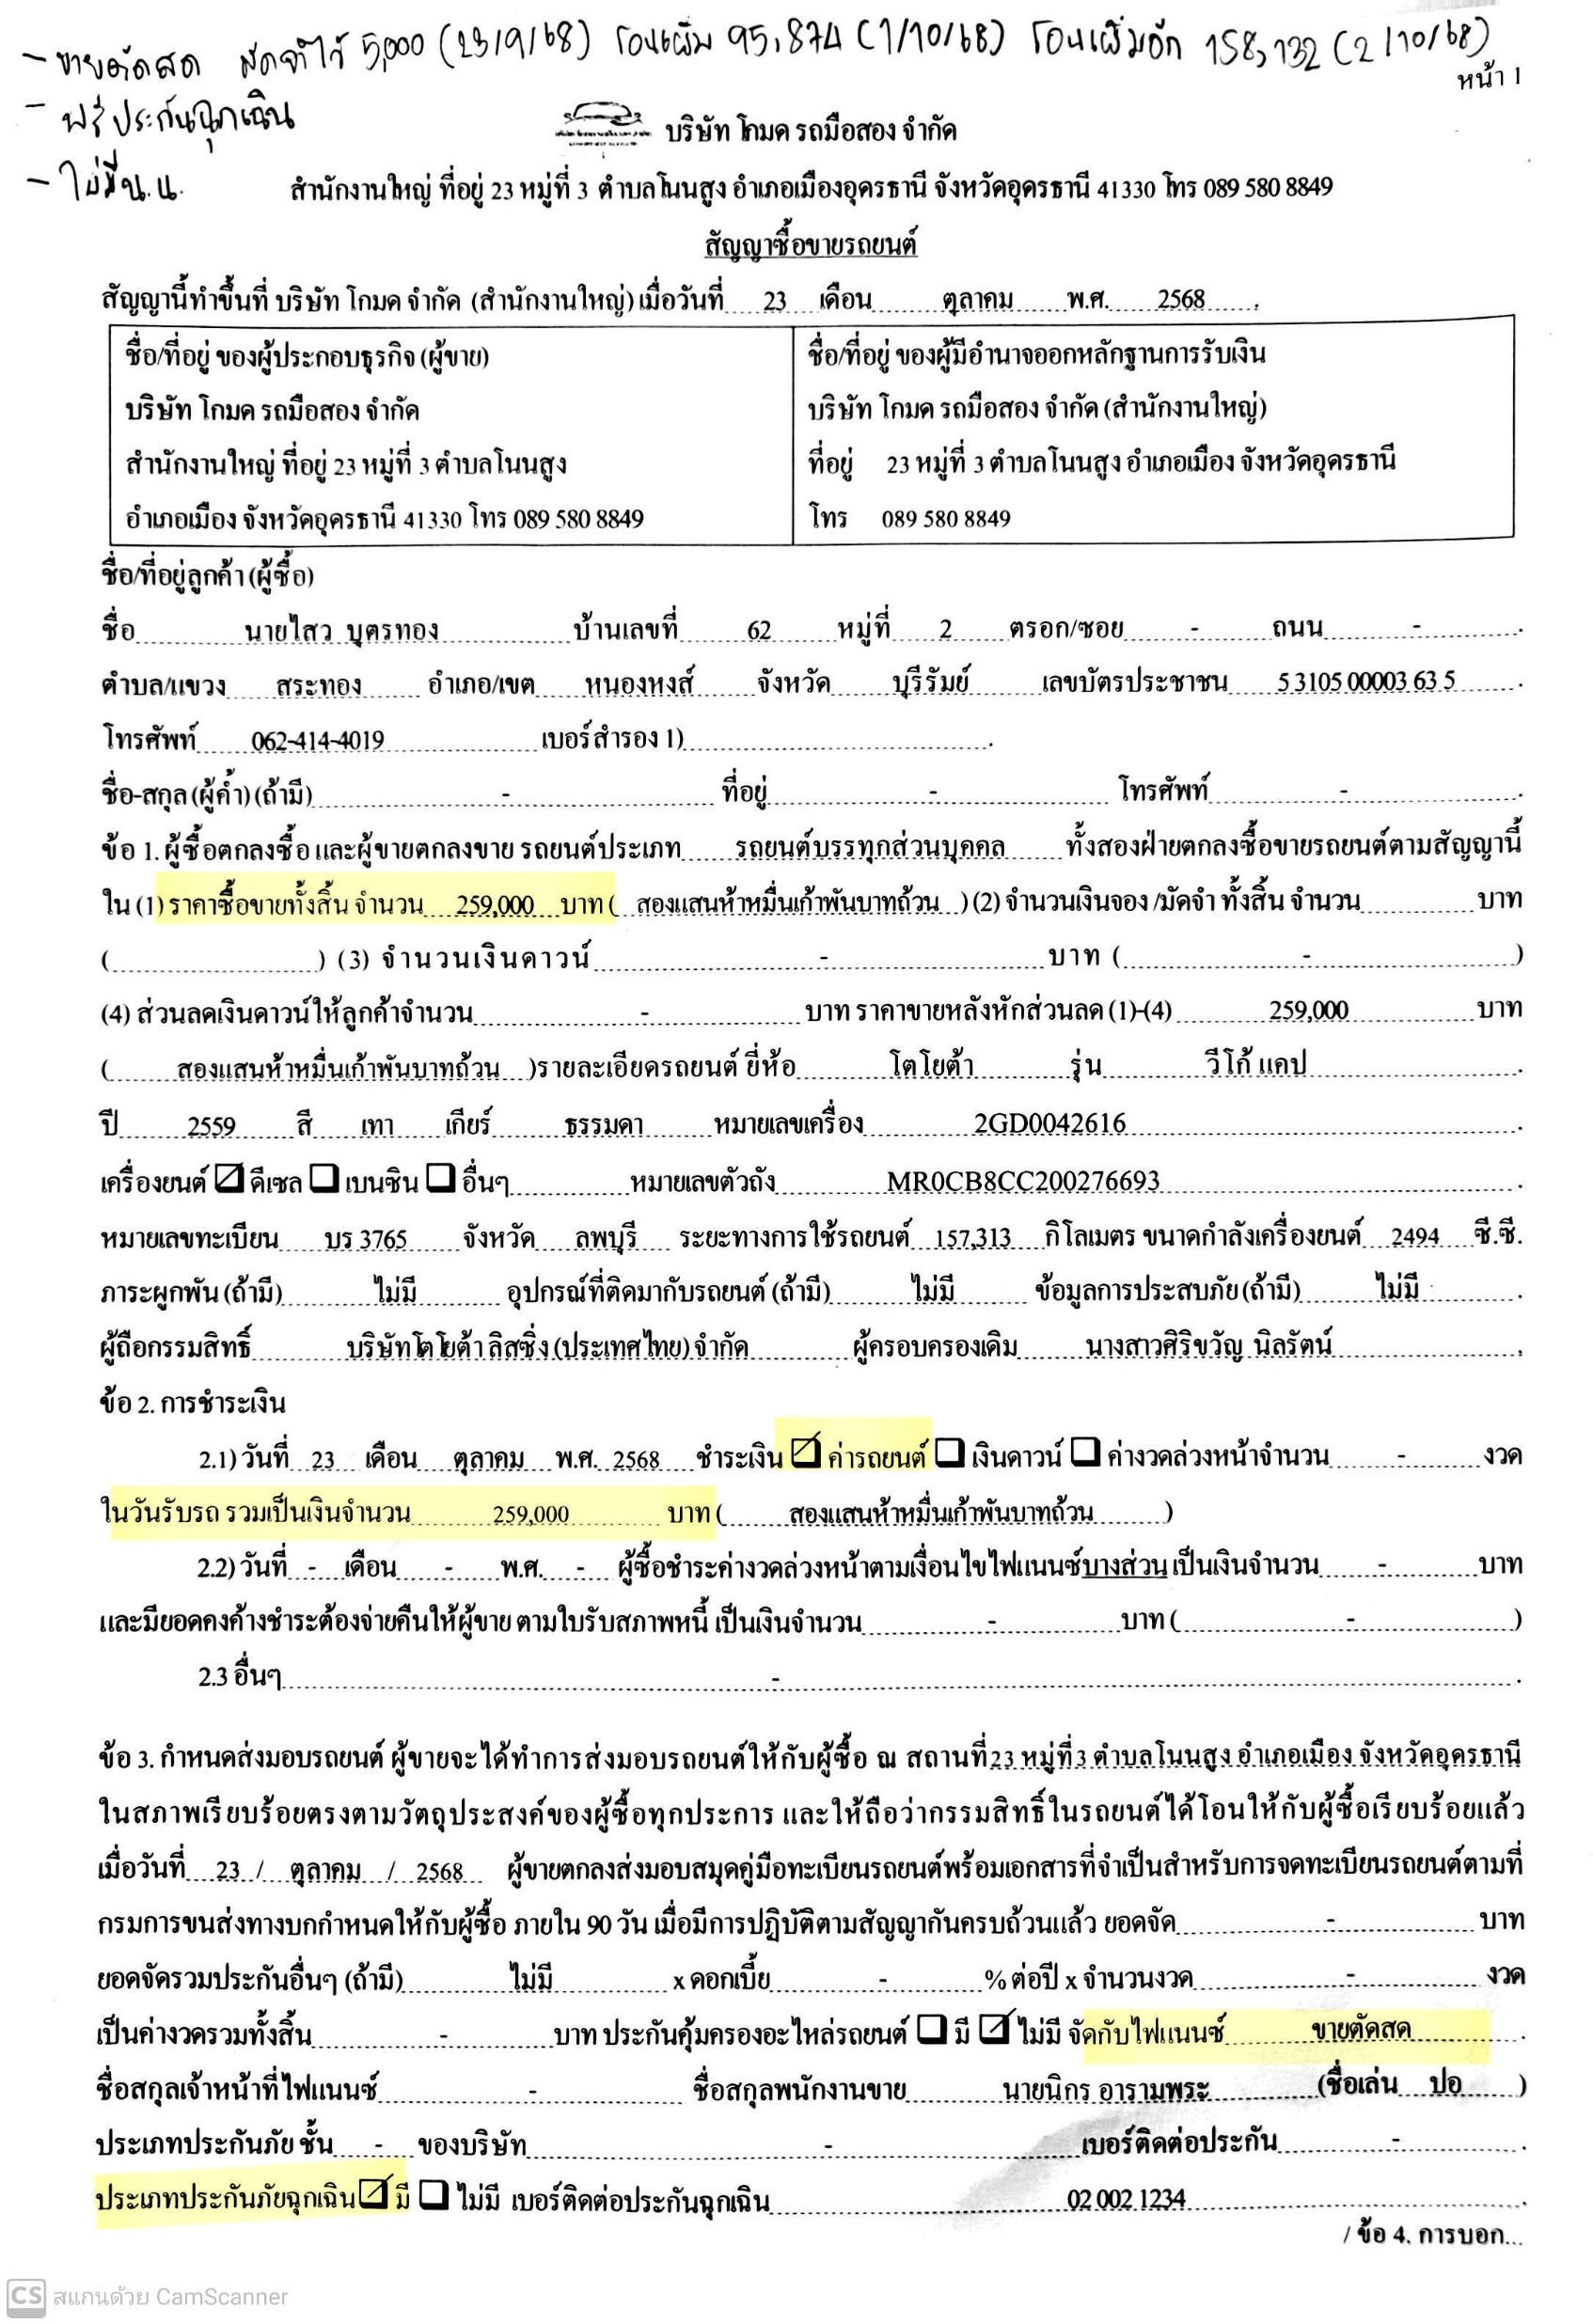 - ขายตัดสด มัดจำไว้ 5,000 (23/9/68) โอนเพิ่ม 95,874 (1/10/68) โอนเพิ่มอีก 158,132 (2/10/68)
หน้า 1
- ฟรีประกันฉุกเฉิน
- ไม่มี น.น.
บริษัท โกมค รถมือสอง จำกัด
สำนักงานใหญ่ ที่อยู่ 23 หมู่ที่ 3 ตำบลโนนสูง อำเภอเมืองอุดรธานี จังหวัดอุดรธานี 41330 โทร 089 580 8849
สัญญาซื้อขายรถยนต์
สัญญานี้ทำขึ้นที่ บริษัท โกมค จำกัด (สำนักงานใหญ่) เมื่อวันที่ 23 เดือน ตุลาคม พ.ศ. 2568
ชื่อ/ที่อยู่ ของผู้ประกอบธุรกิจ (ผู้ขาย)
บริษัท โกมค รถมือสอง จำกัด
สำนักงานใหญ่ ที่อยู่ 23 หมู่ที่ 3 ตำบลโนนสูง
อำเภอเมือง จังหวัดอุดรธานี 41330 โทร 089 580 8849
ชื่อ/ที่อยู่ ของผู้มีอำนาจออกหลักฐานการรับเงิน
บริษัท โกมค รถมือสอง จำกัด (สำนักงานใหญ่)
ที่อยู่ 23 หมู่ที่ 3 ตำบลโนนสูง อำเภอเมือง จังหวัดอุดรธานี
โทร 089 580 8849
ชื่อ/ที่อยู่ลูกค้า (ผู้ซื้อ)
ชื่อ นายไสว บุตรทอง บ้านเลขที่ 62 หมู่ที่ 2 ตรอก/ซอย - ถนน -
ตำบล/แขวง สระทอง อำเภอ/เขต หนองหงส์ จังหวัด บุรีรัมย์ เลขบัตรประชาชน 5 3105 00003 63 5
โทรศัพท์ 062-414-4019 เบอร์สำรอง 1)
ชื่อ-สกุล (ผู้ค้ำ) (ถ้ามี) - ที่อยู่ - โทรศัพท์ -
ข้อ 1. ผู้ซื้อตกลงซื้อ และผู้ขายตกลงขาย รถยนต์ประเภท รถยนต์บรรทุกส่วนบุคคล ทั้งสองฝ่ายตกลงซื้อขายรถยนต์ตามสัญญานี้
ใน (1) ราคาซื้อขายทั้งสิ้น จำนวน 259,000 บาท ( สองแสนห้าหมื่นเก้าพันบาทถ้วน ) (2) จำนวนเงินจอง /มัดจำ ทั้งสิ้น จำนวน บาท
( ) (3) จำนวนเงินดาวน์ - บาท ( - )
(4) ส่วนลดเงินดาวน์ให้ลูกค้าจำนวน - บาท ราคาขายหลังหักส่วนลด (1)-(4) 259,000 บาท
( สองแสนห้าหมื่นเก้าพันบาทถ้วน )รายละเอียดรถยนต์ ยี่ห้อ โตโยต้า รุ่น วีโก้ แคป
ปี 2559 สี เทา เกียร์ ธรรมดา หมายเลขเครื่อง 2GD0042616
เครื่องยนต์ ☑ ดีเซล ☐ เบนซิน ☐ อื่นๆ หมายเลขตัวถัง MR0CB8CC200276693
หมายเลขทะเบียน บร 3765 จังหวัด ลพบุรี ระยะทางการใช้รถยนต์ 157,313 กิโลเมตร ขนาดกำลังเครื่องยนต์ 2494 ซี.ซี.
ภาระผูกพัน (ถ้ามี) ไม่มี อุปกรณ์ที่ติดมากับรถยนต์ (ถ้ามี) ไม่มี ข้อมูลการประสบภัย (ถ้ามี) ไม่มี
ผู้ถือกรรมสิทธิ์ บริษัทโตโยต้า ลิสซิ่ง (ประเทศไทย) จำกัด ผู้ครอบครองเดิม นางสาวศิริขวัญ นิลรัตน์
ข้อ 2. การชำระเงิน
2.1) วันที่ 23 เดือน ตุลาคม พ.ศ. 2568 ชำระเงิน ☑ ค่ารถยนต์ ☐ เงินดาวน์ ☐ ค่างวดล่วงหน้าจำนวน - งวด
ในวันรับรถ รวมเป็นเงินจำนวน 259,000 บาท ( สองแสนห้าหมื่นเก้าพันบาทถ้วน )
2.2) วันที่ - เดือน - พ.ศ. - ผู้ซื้อชำระค่างวดล่วงหน้าตามเงื่อนไขไฟแนนซ์บางส่วน เป็นเงินจำนวน - บาท
และมียอดคงค้างชำระต้องจ่ายคืนให้ผู้ขาย ตามใบรับสภาพหนี้ เป็นเงินจำนวน - บาท ( - )
2.3 อื่นๆ -
ข้อ 3. กำหนดส่งมอบรถยนต์ ผู้ขายจะได้ทำการส่งมอบรถยนต์ให้กับผู้ซื้อ ณ สถานที่ 23 หมู่ที่3 ตำบลโนนสูง อำเภอเมือง จังหวัดอุดรธานี
ในสภาพเรียบร้อยตรงตามวัตถุประสงค์ของผู้ซื้อทุกประการ และให้ถือว่ากรรมสิทธิ์ในรถยนต์ได้โอนให้กับผู้ซื้อเรียบร้อยแล้ว
เมื่อวันที่ 23 / ตุลาคม / 2568 ผู้ขายตกลงส่งมอบสมุดคู่มือทะเบียนรถยนต์พร้อมเอกสารที่จำเป็นสำหรับการจดทะเบียนรถยนต์ตามที่
กรมการขนส่งทางบกกำหนดให้กับผู้ซื้อ ภายใน 90 วัน เมื่อมีการปฏิบัติตามสัญญากันครบถ้วนแล้ว ยอดจัด - บาท
ยอดจัดรวมประกันอื่นๆ (ถ้ามี) ไม่มี x ดอกเบี้ย - % ต่อปี x จำนวนงวด - งวด
เป็นค่างวดรวมทั้งสิ้น - บาท ประกันคุ้มครองอะไหล่รถยนต์ ☐ มี ☑ ไม่มี จัดกับไฟแนนซ์ ขายตัดสด
ชื่อสกุลเจ้าหน้าที่ไฟแนนซ์ - ชื่อสกุลพนักงานขาย นายนิกร อารามพระ (ชื่อเล่น ปอ )
ประเภทประกันภัย ชั้น - ของบริษัท - เบอร์ติดต่อประกัน -
ประเภทประกันภัยฉุกเฉิน ☑ มี ☐ ไม่มี เบอร์ติดต่อประกันฉุกเฉิน 02 002 1234
/ ข้อ 4. การบอก...
CS สแกนด้วย CamScanner